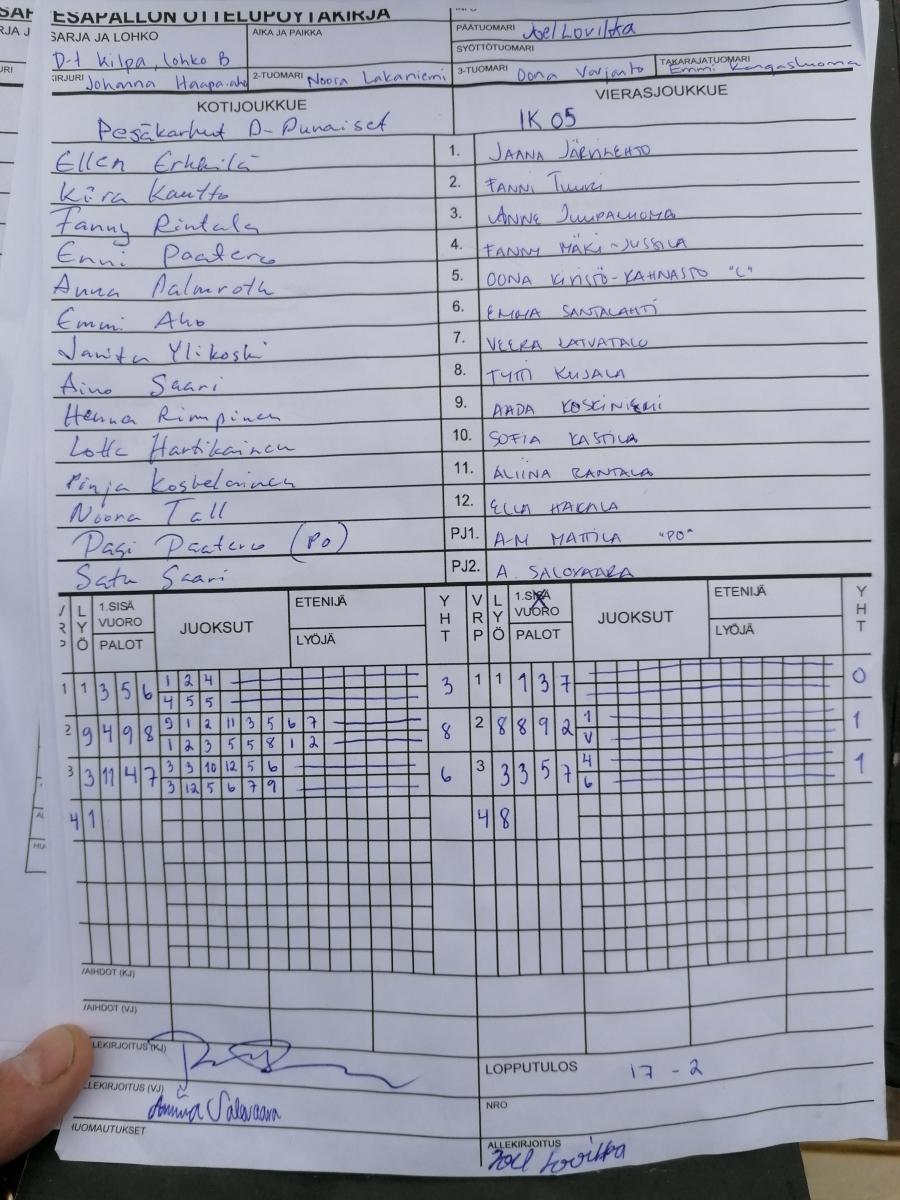 ESAPALLON OTTELUPÖYTÄKIRJA
SARJA JA LOHKO
D-t Kilpa, lohko B
AIKA JA PAIKKA
PÄÄTUOMARI Joel Lovikka
SYÖTTÖTUOMARI
KIRJURI Johanna Haapa-aho
2-TUOMARI Noora Lakaniemi
3-TUOMARI Oona Varjanto
TAKARAJATUOMARI Emmi Kangasluoma
KOTIJOUKKUE
VIERASJOUKKUE
Pesäkarhut D-Punaiset
IK 05
Ellen Erkkilä 1. JAANA JÄRVILEHTO
Kiira Kautto 2. FANNI TUURI
Fanny Rintala 3. ANNE LUUPALUOMA
Enni Paatero 4. FANNY MÄKI-JUSSILA
Anna Palmroth 5. OONA KIVISTÖ-KAHNASTO "C"
Emmi Aho 6. EMMA SANTALAHTI
Janita Ylikoski 7. VEERA LATVATALO
Aino Saari 8. TYTTI KUJALA
Henna Rimpinen 9. AADA KOSKINIEMI
Lotta Hartikainen 10. SOFIA KASTILA
Pinja Koskelainen 11. ALIINA RANTALA
Noora Tall 12. ELLA HAKALA
Pasi Paatero (PO) PJ1. A-M MATTILA "PO"
Satu Saari PJ2. A. SALOVAARA
LYÖ 1.SISÄ VUORO PALOT JUOKSUT ETENIJÄ LYÖJÄ YHT VRP LYÖ 1.SISÄ VUORO PALOT JUOKSUT ETENIJÄ LYÖJÄ YHT
1 1 3 5 6 1 2 4 3 1 1 1 3 7 0
4 5 5
2 9 4 9 8 9 1 2 11 3 5 6 7 8 2 8 8 9 2 1 1
1 2 3 5 5 8 1 2 V
3 3 11 4 7 3 3 10 12 5 6 6 3 3 3 5 7 4 1
3 12 5 6 7 9 6
4 1 4 8
VAIHDOT (KJ)
VAIHDOT (VJ)
LEKIRJOITUS (KJ)
LOPPUTULOS 17 - 2
LLEKIRJOITUS (VJ) Anniina Salovaara
NRO
HUOMAUTUKSET
ALLEKIRJOITUS Joel Lovikka